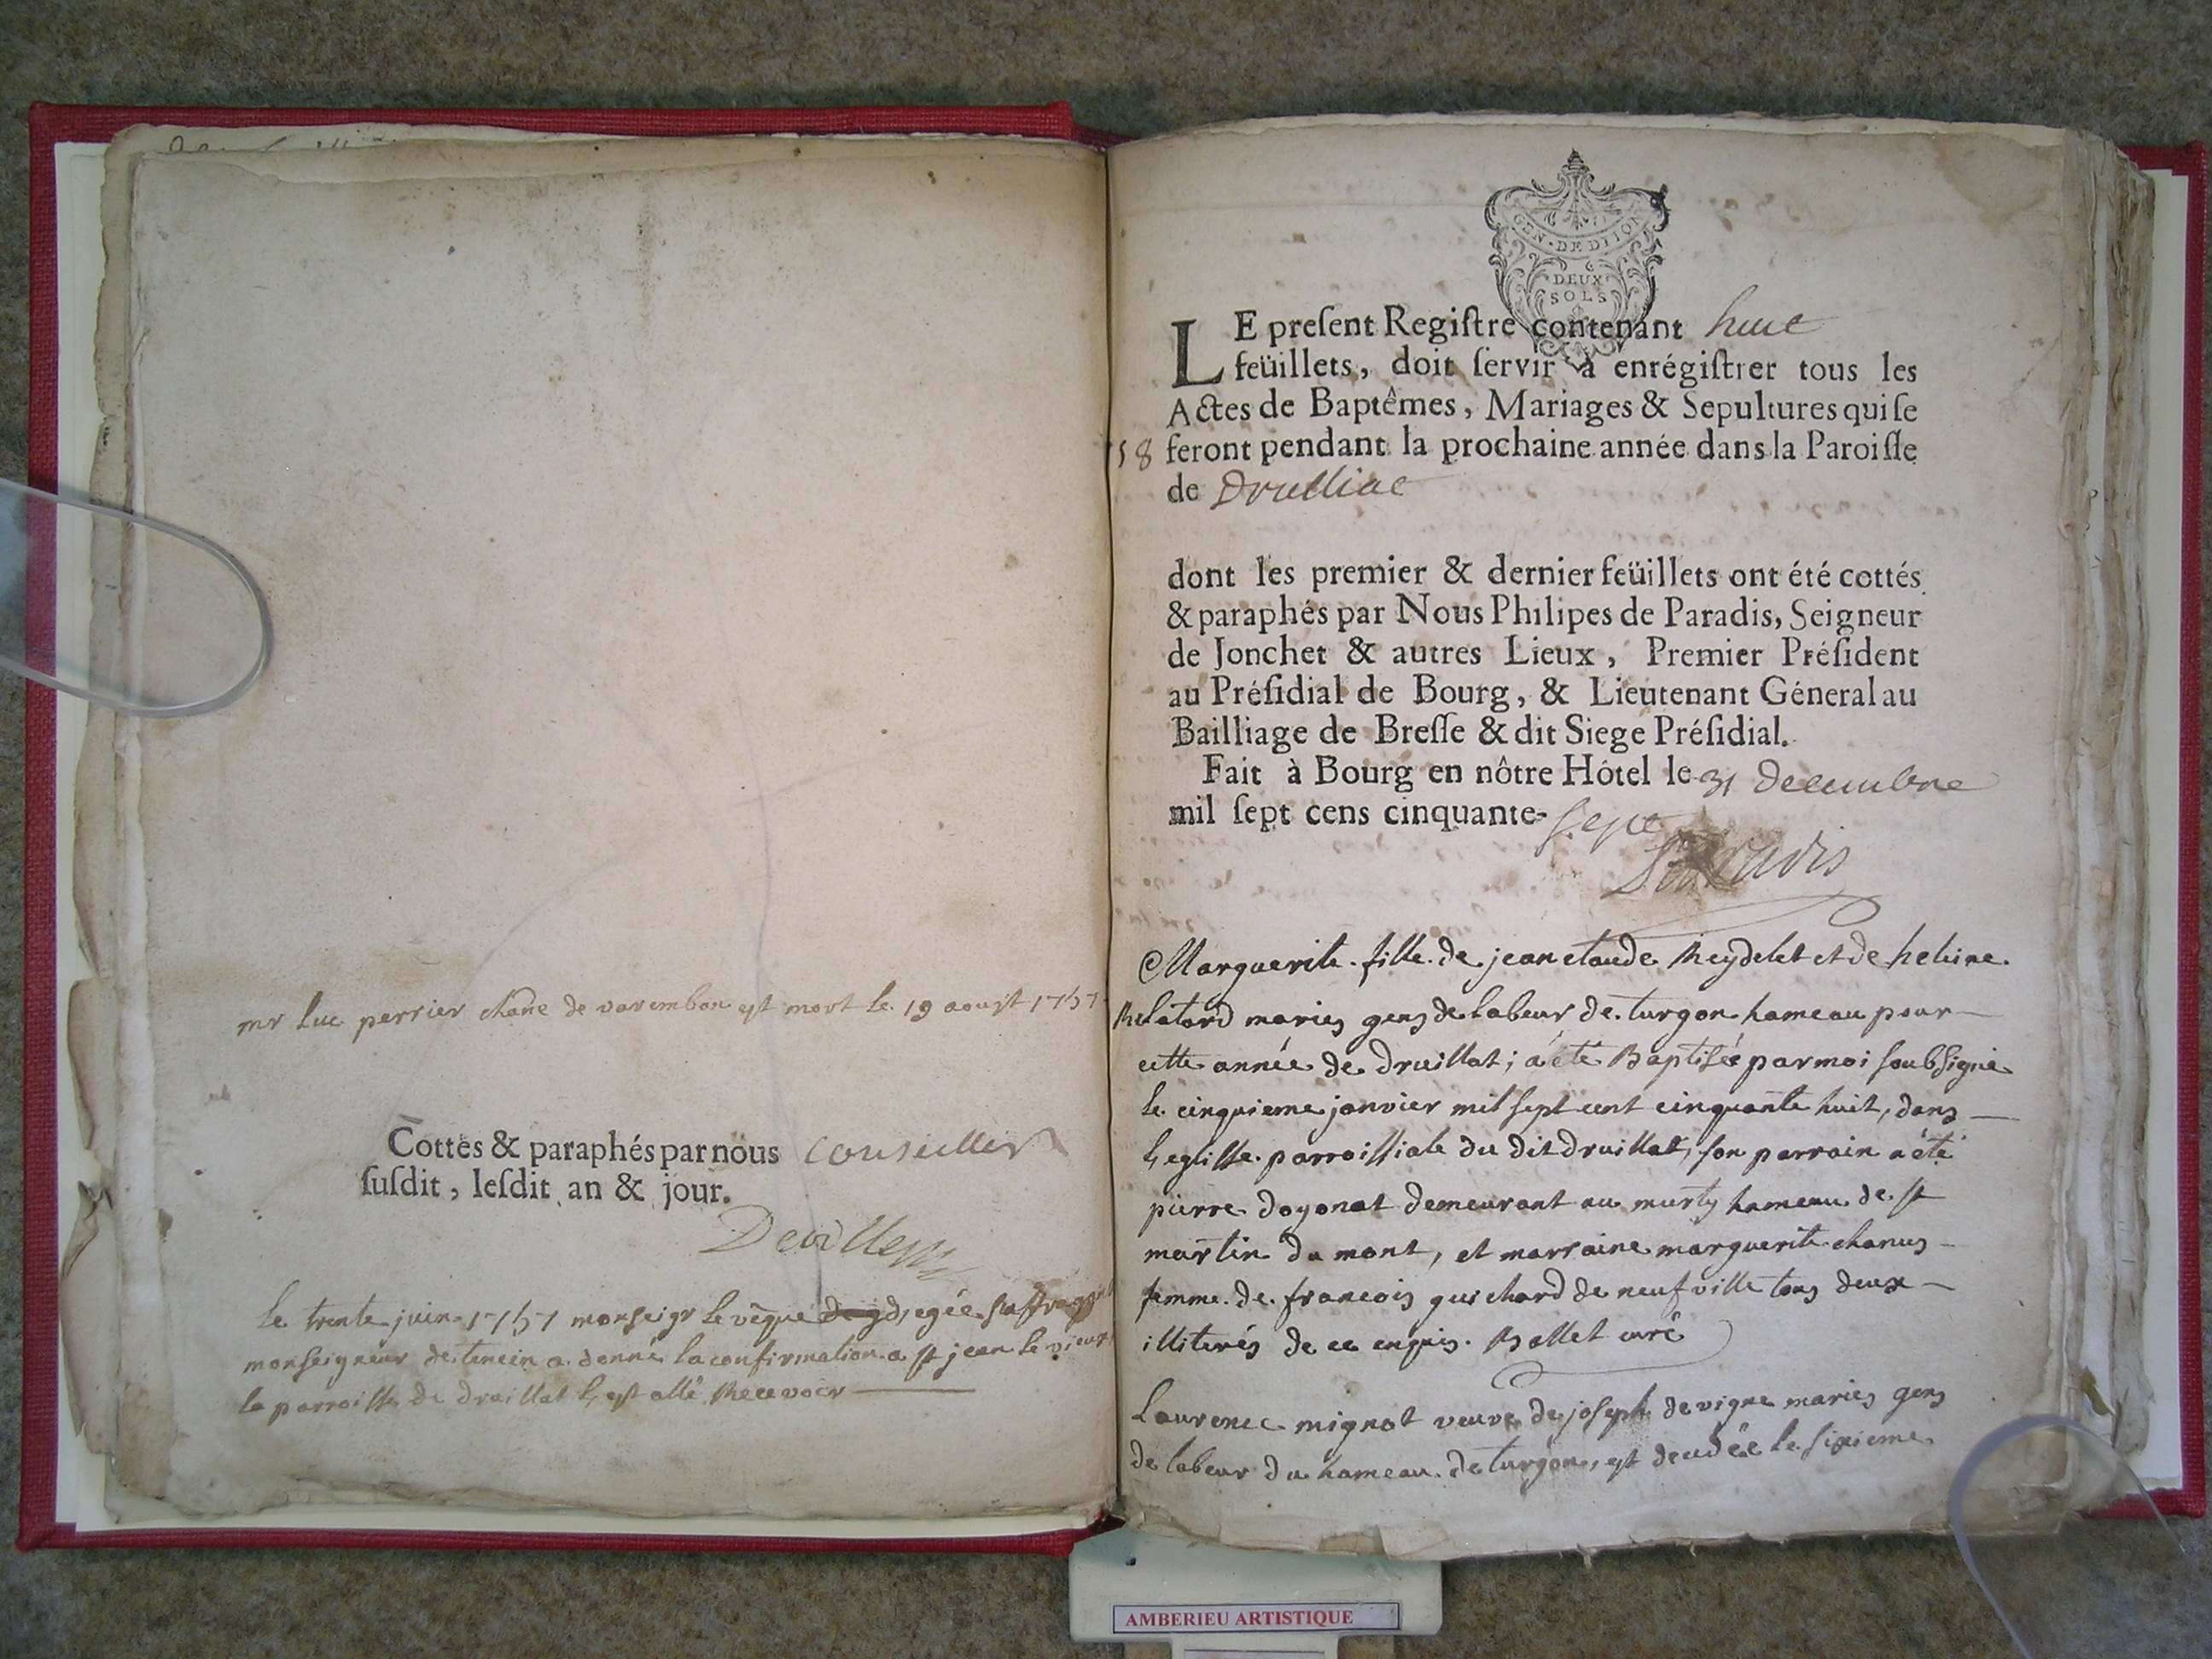 mr Luc perrier chane de varembon est mort le 19 aoust 1757
Cottés & paraphés par nous conseiller
susdit, lesdit an & jour.
le trente juin 1757 monseigr levêque d'egée suffragant
monseigneur de tencin a donné la confirmation a st jean le vieux
la parroisse de druillat l'y est allé Recevoir
GEN·DE DIJON
DEUX
SOLS
LE present Registre contenant huit
feüillets, doit servir à enrégistrer tous les
Actes de Baptêmes, Mariages & Sepultures qui se
58 feront pendant la prochaine année dans la Paroisse
de Druilliat
dont les premier & dernier feüillets ont été cottés
& paraphés par Nous Philipes de Paradis, Seigneur
de Jonchet & autres Lieux, Premier Président
au Présidial de Bourg, & Lieutenant Géneral au
Bailliage de Bresse & dit Siege Présidial.
Fait à Bourg en nôtre Hôtel le 31 decembre
mil sept cens cinquante-sept
Paradis
Marguerite fille de jean claude Reydelet et de heleine
Relatord mariés gens de labeur de turgon hameau pour
cette année de druillat; a été Baptisée par moi soubsigné
le cinquieme janvier mil sept cent cinquante huit, dans
l'eglisse parroissiale du dit druillat, son parrain a été
pierre doyonat demeurant au murty hameau de st
martin du mont, et marraine marguerite chanus
femme de francois guichard de neufville tous deux
illiterés de ce enquis. Ballet curé
Laurence mignot veuve de joseph devigne mariés gens
de labeur du hameau de turgon, est decedée le sixieme
AMBERIEU ARTISTIQUE